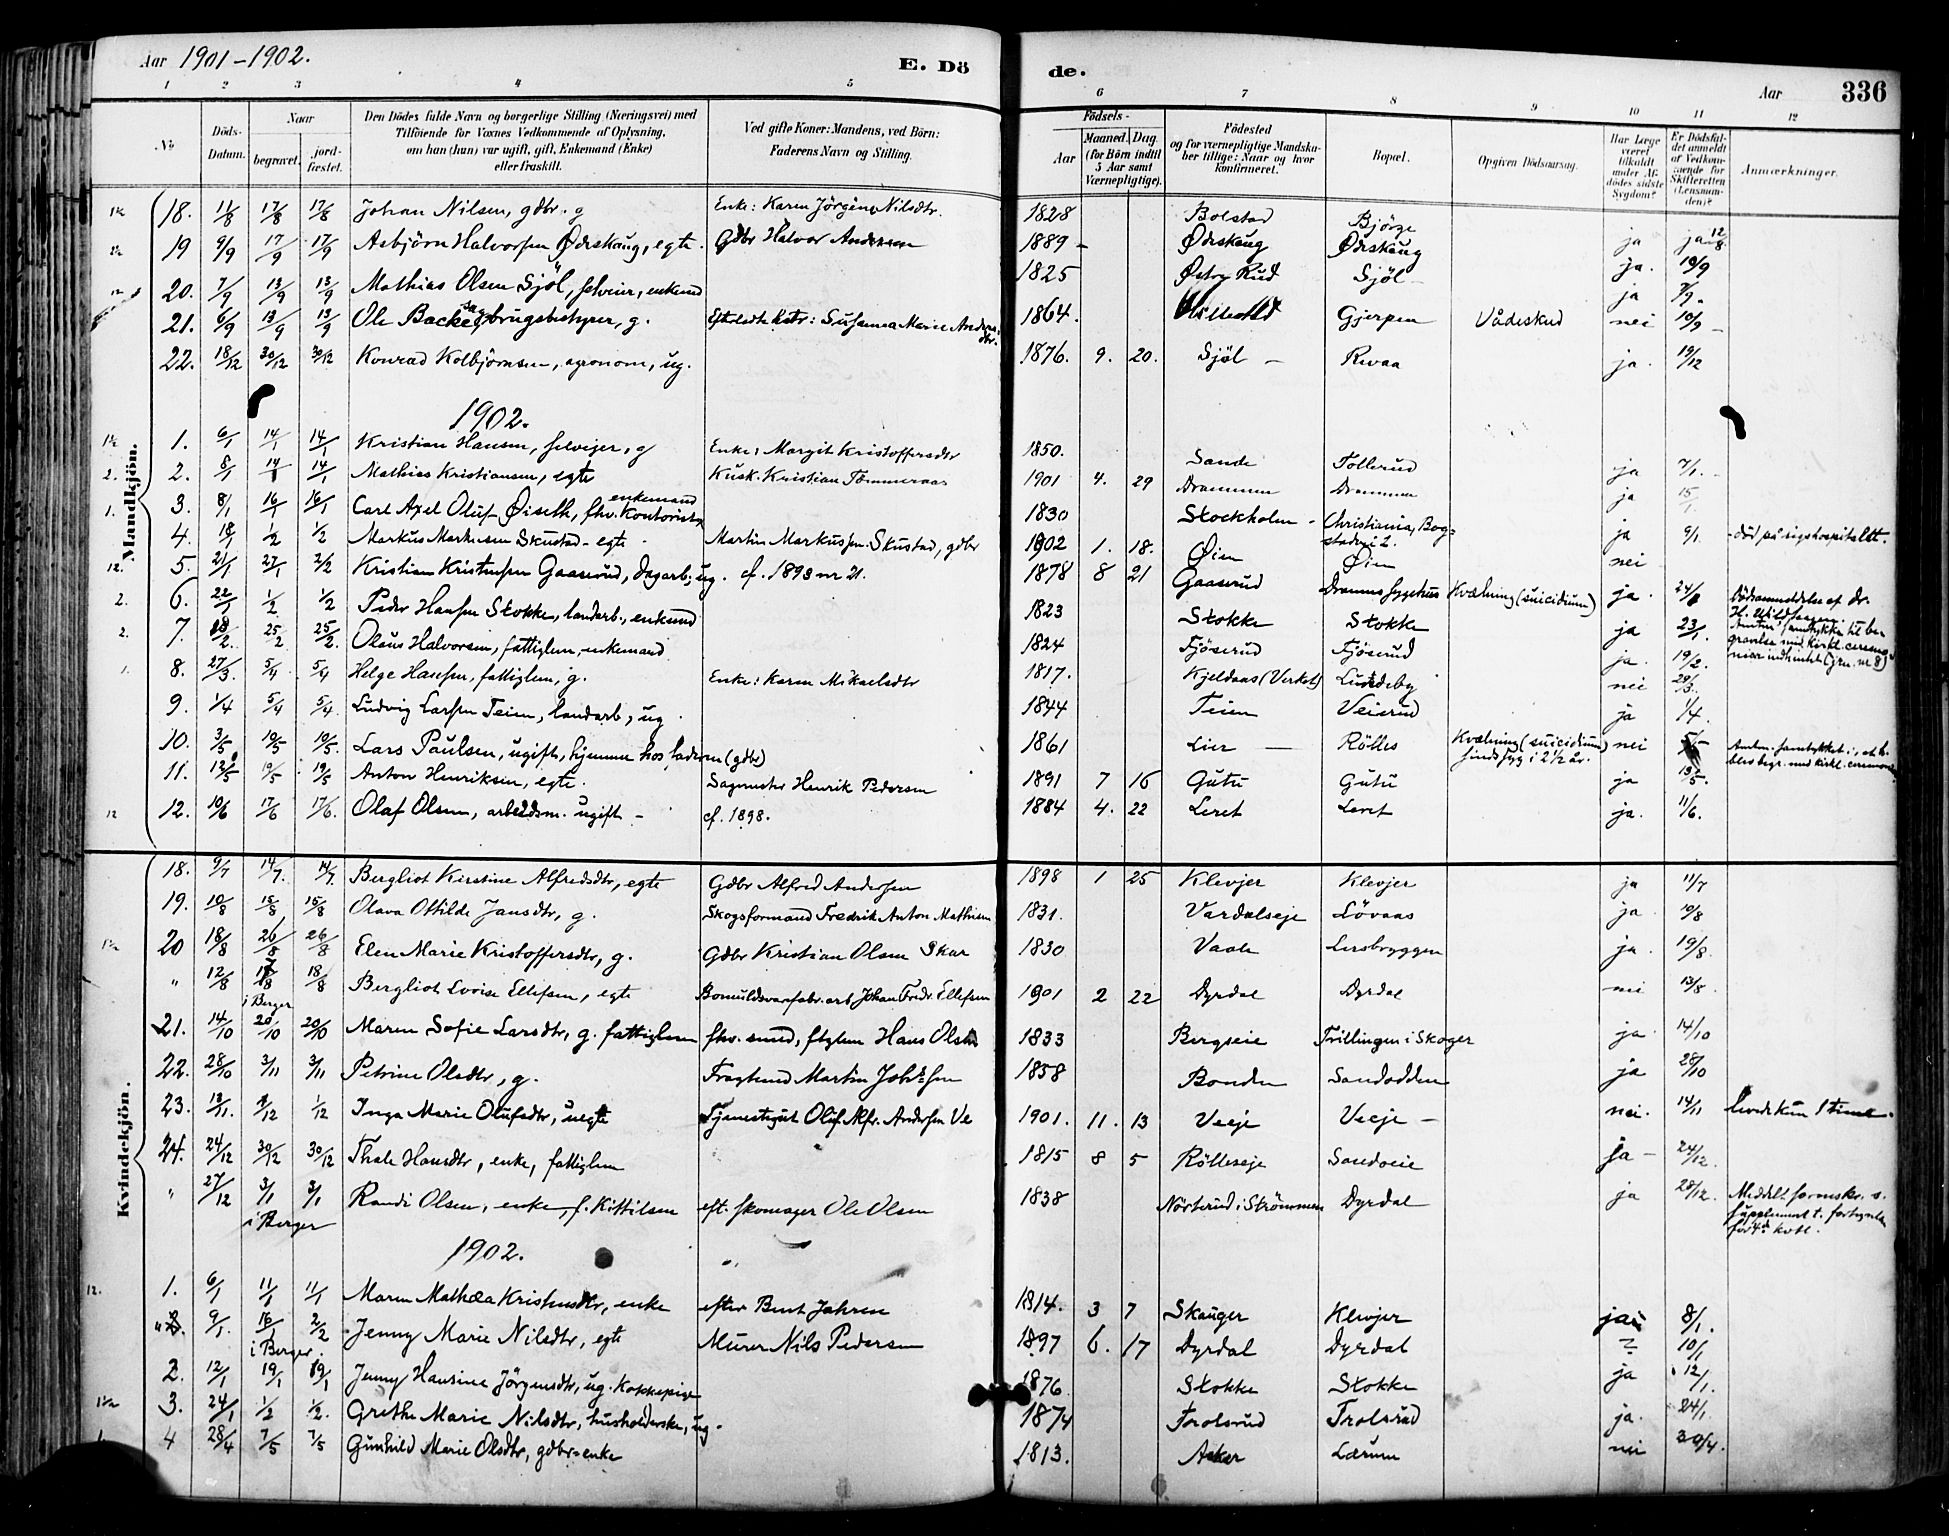 Aar 1901-1902.
E. Dö
de.
Aar
336
1 2 3 4 5 6 7 8 9 10 11 12
No
Döds-Datum.
Naar
begravet.
jord-fæstet.
Den Dödes fulde Navn og borgerlige Stilling (Næringsvei) med
Tilföiende for Voxnes Vedkommende af Oplysning,
om han (hun) var ugift, gift, Enkemand (Enke)
eller fraskilt.
Ved gifte Koner: Mandens, ved Börn:
Faderens Navn og Stilling.
Födsels-
Aar
Maaned. Dag
(for Börn indtil
5 Aar samt
Værnepligtige).
Födested
og for værnepligtige Mandska-
ber tillige: Naar og hvor
konfirmeret.
Bopæl.
Opgiven Dödsaarsag.
Har Læge
været
tilkaldt
under Af-
dödes sidste
Sygdom?
Er Dödsfal-
det anmeldt
af Vedkom-
mende for
Skifteretten
(Lensman-
den)?
Anmærkninger.
Mandkjön.
18. 11/8 17/8 17/8 Johan Nilsen, gdbr. g Enke: Karen Jörgine Nilsdtr. 1828 Bolstad Bjørge ja ja 12/8.
19 9/9 17/9 17/9 Asbjörn Halvorsen Ødeskaug, egte. Gdbr Halvor Andersen 1889 - Ødeskaug Ødeskaug ja. 10/9
20. 7/9 13/9 13/9 Mathias Olsen Sjöl, selveier, enkemd 1825 Østry Rud Sjöl - ja 7/9.
21. 6/9 13/9 13/9 Ole Backe, sagbrugsbestyrer, g. Efterladte hstr: Susanna Marie Andersdtr. 1864. Gjerpen Vådeskud nei 10/9 -
22. 18/12 30/12 30/12 Konrad Kolbjörnsen, agronom, ug. 1876. 9. 20. Sjöl - Revaa ja. 19/12
1902.
1. 6/1 14/1 14/1 Kristian Hansen, selveier, g Enke: Margit Kristoffersdtr 1850. Sande Tollerud ja 7/1. -
2. 8/1 14/1 14/1 Mathias Kristiansen, egte Kusk. Kristian Tömmeraas 1901 4. 29 Drammen Drammen ja 15/1.
3. 8/1 16/1 16/1 Carl Axel Oluf Øiseth, fhv. Kontorist enkemand 1830 Stockholm - Christiania, Bog-stadvei 2. ja 9/1. - död på rigshospitalet.
4. 18/1 1/2 1/2 Markus Markussen Skustad - egte - Martin Markussen Skustad, gdbr 1902 1. 18. Øien Øien nei
5. 21/1 27/1 2/2 Kristian Kristensen Gaaserud, dagarb; ug. cf. 1898 nr 21. 1878 8 21 Gaaserud Drammens sygehus Kvælning (suicidium) ja. 24/1 Dödsanmeldelse af dr.
6. 22/1 1/2 1/2 Peder Hansen Stokke, landarb., enkemd 1823 Stokke Stokke ja 23/1.
7. 18/2. 25/2 25/2. Olaus Halvorsen, fattiglem, enkemand 1824 Fjöserud Fjöserud ja. 19/2.
8. 27/3. 5/4 5/4 Helge Hansen, fattiglem, g. Enke: Karen Mikaelsdtr 1817. Kjeldaas (Verket) Lundeby nei 29/3.
9. 1/4 5/4 5/4. Ludvig Larsen Teien, landarb, ug. 1844 Teien Veierud ja 1/4.
10. 3/5 10/5 10/5. Lars Paulsen, ugift, hjemme hos faderen (gdbr) 1861 Lier - Rölles Kvælning (suicidium) sindssyg i 2 1/2 år. nei
11. 13/5 19/5 19/5 Anton Henriksen, egte. Sagmester Henrik Pedersen 1891 7 16 Gutu Gutu ja 13/5.
12. 10/6 17/6 17/6. Olaf Olsen, arbeidsm. ugift - cf. 1898. 1884 4. 22 Leret Leret ja. 11/6.
Kvindekjön.
18. 9/7 14/7. 14/7. Bergliot Kirstine Alfredsdtr, egte Gdbr Alfred Andersen 1898 1 25 Klevjer Klevjer ja 11/7
19. 10/8 15/8 15/8 Olava Ottilde Jansdtr, g. Skogsformand Fredrik Anton Mathisen 1831. Vardalseje Lövaas ja. 10/8
20 18/8 26/8 26/8 Elen Marie Kristoffersdtr, g. Gdbr Kristian Olsen Skar 1830 Vaale Lersbryggen ja. 19/8.
" 12/8 17/8 i Berger 18/8 Bergliot Lovise Ellefsen, egte Bomuldsvarefabr. arb Johan Fredr. Ellefsen 1901 2 22 Dyrdal Dyrdal nei 13/8.
21. 14/10 20/10 20/10 Maren Sofie Larsdtr, g. fattiglem fhv. smed, ftglem Hans Olsen 1833 Bergseie Trillingen i Skoger ja. 14/10
22. 28/10 3/11 3/11 Petrine Olsdtr, g. Martin 1858 Bonden Sandodden ja 28/10
23. 13/11. 1/12 1/12 Inga Marie Olufsdtr, uegte Tjenestegut Oluf Alfr. Andersen Ve 1901. 11. 13 Veeje Veeje - nei. 14/11 levede kun 1 time.
24. 24/12 30/12 30/12 Thale Hansdtr, enke, fattiglem 1815 8 5 Rölleseje Sandveie ja - 24/12.
" 27/12 3/1 i Berger 3/1 Randi Olsen, enke, f. Kittilsen eft. skomager Ole Olsen 1838 Nörterud i Strömmen Dyrdal ja 28/12.
1902.
1. 6/1 11/1 11/1 Maren Mathea Kristensdtr, enke efter Bent Jahren 1814. 3 7 Skauger Klevjer ja 8/1.
" 9/1. 16/1 i Berger. 2/2 Jenny Marie Nilsdtr, egte Murer Nils Pedersen 1897 6. 17 Dyrdal Dyrdal ? 10/1
2. 12/1 19/1 19/1 Jenny Hansine Jörgensdtr, ug. Kokkepige 1876 Stokke Stokke ja 12/1.
3. 24/1 1/2 1/2. Grethe Marie Nilsdtr, husholderske, ug. 1874 Trolsrud Trolsrud ja. 24/1.
4 28/4 7/5 7/5 Gunhild Marie Olsdtr, gdbr-enke 1813. Asker Lærum nei 30/4.